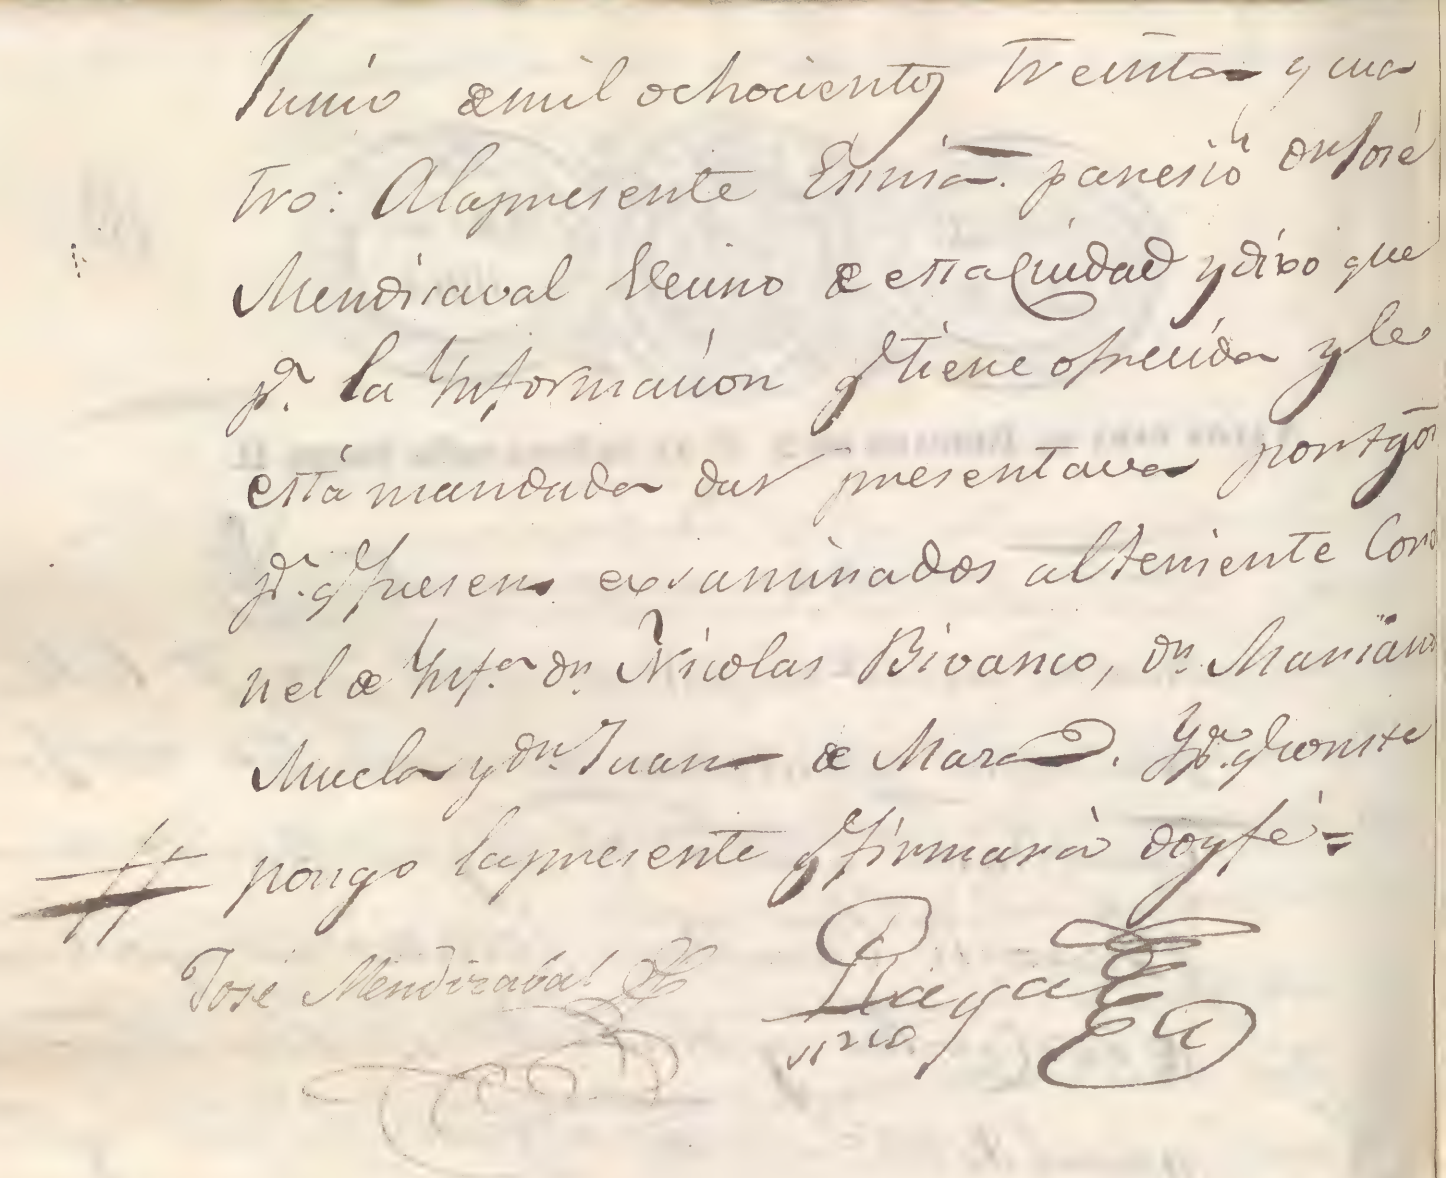 Junio de mil ochocientos Treinta y cua
tro: Ala presente Essnia. paresió dn José
Mendisaval Vecino de esta Ciudad y dixo que
pa. la Informacion q tiene ofrecida y le
está mandada dar presentava por tgos
pa. q fuesen exsaminados al teniente Coro
nel de Infa. dn. Nicolas Bivanco, dn. Mariano
Mucla y dn. Juan de Mara. Y pa. q conste
pongo la presente q firmará doy fé =
José Mendizabal
Raya